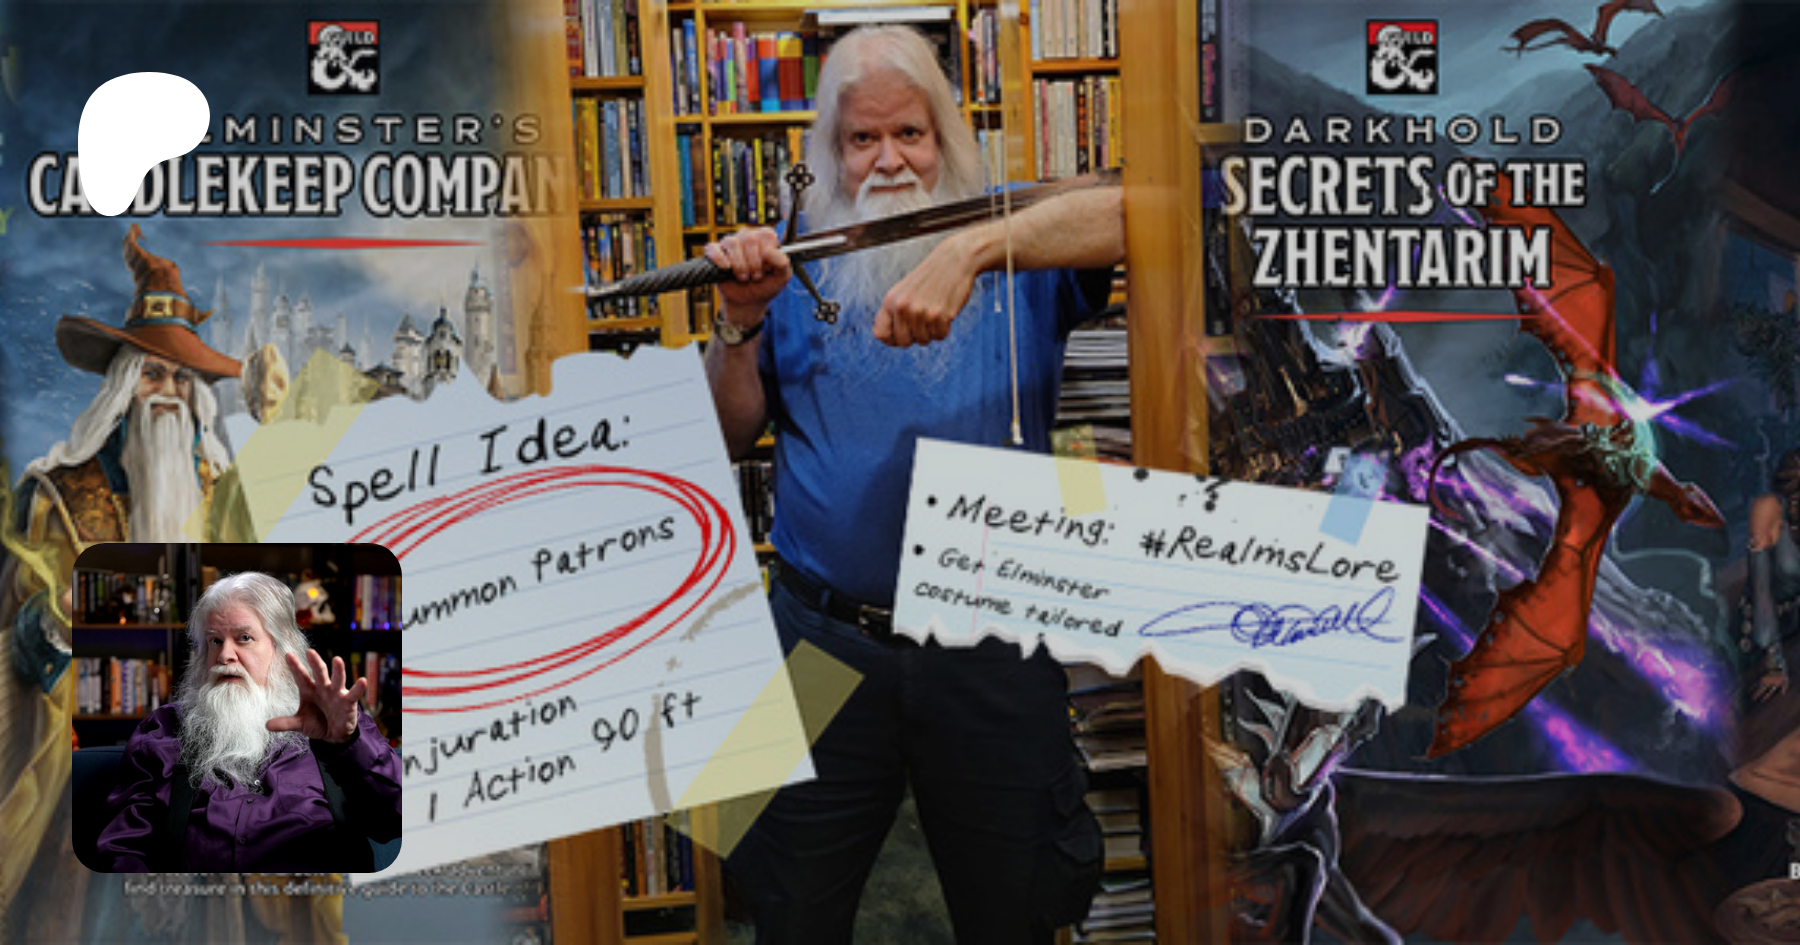 GUILD
&
LMINSTER'S
CA DLEKEEP COMPAN
Spell Idea:
ummon Patrons
njuration
1 Action 90 ft
find treasure in this definitive guide to the Castle
GUILD
&
DARKHOLD
SECRETS OF THE
ZHENTARIM
• Meeting: #RealmsLore
• Get Elminster
costume tailored